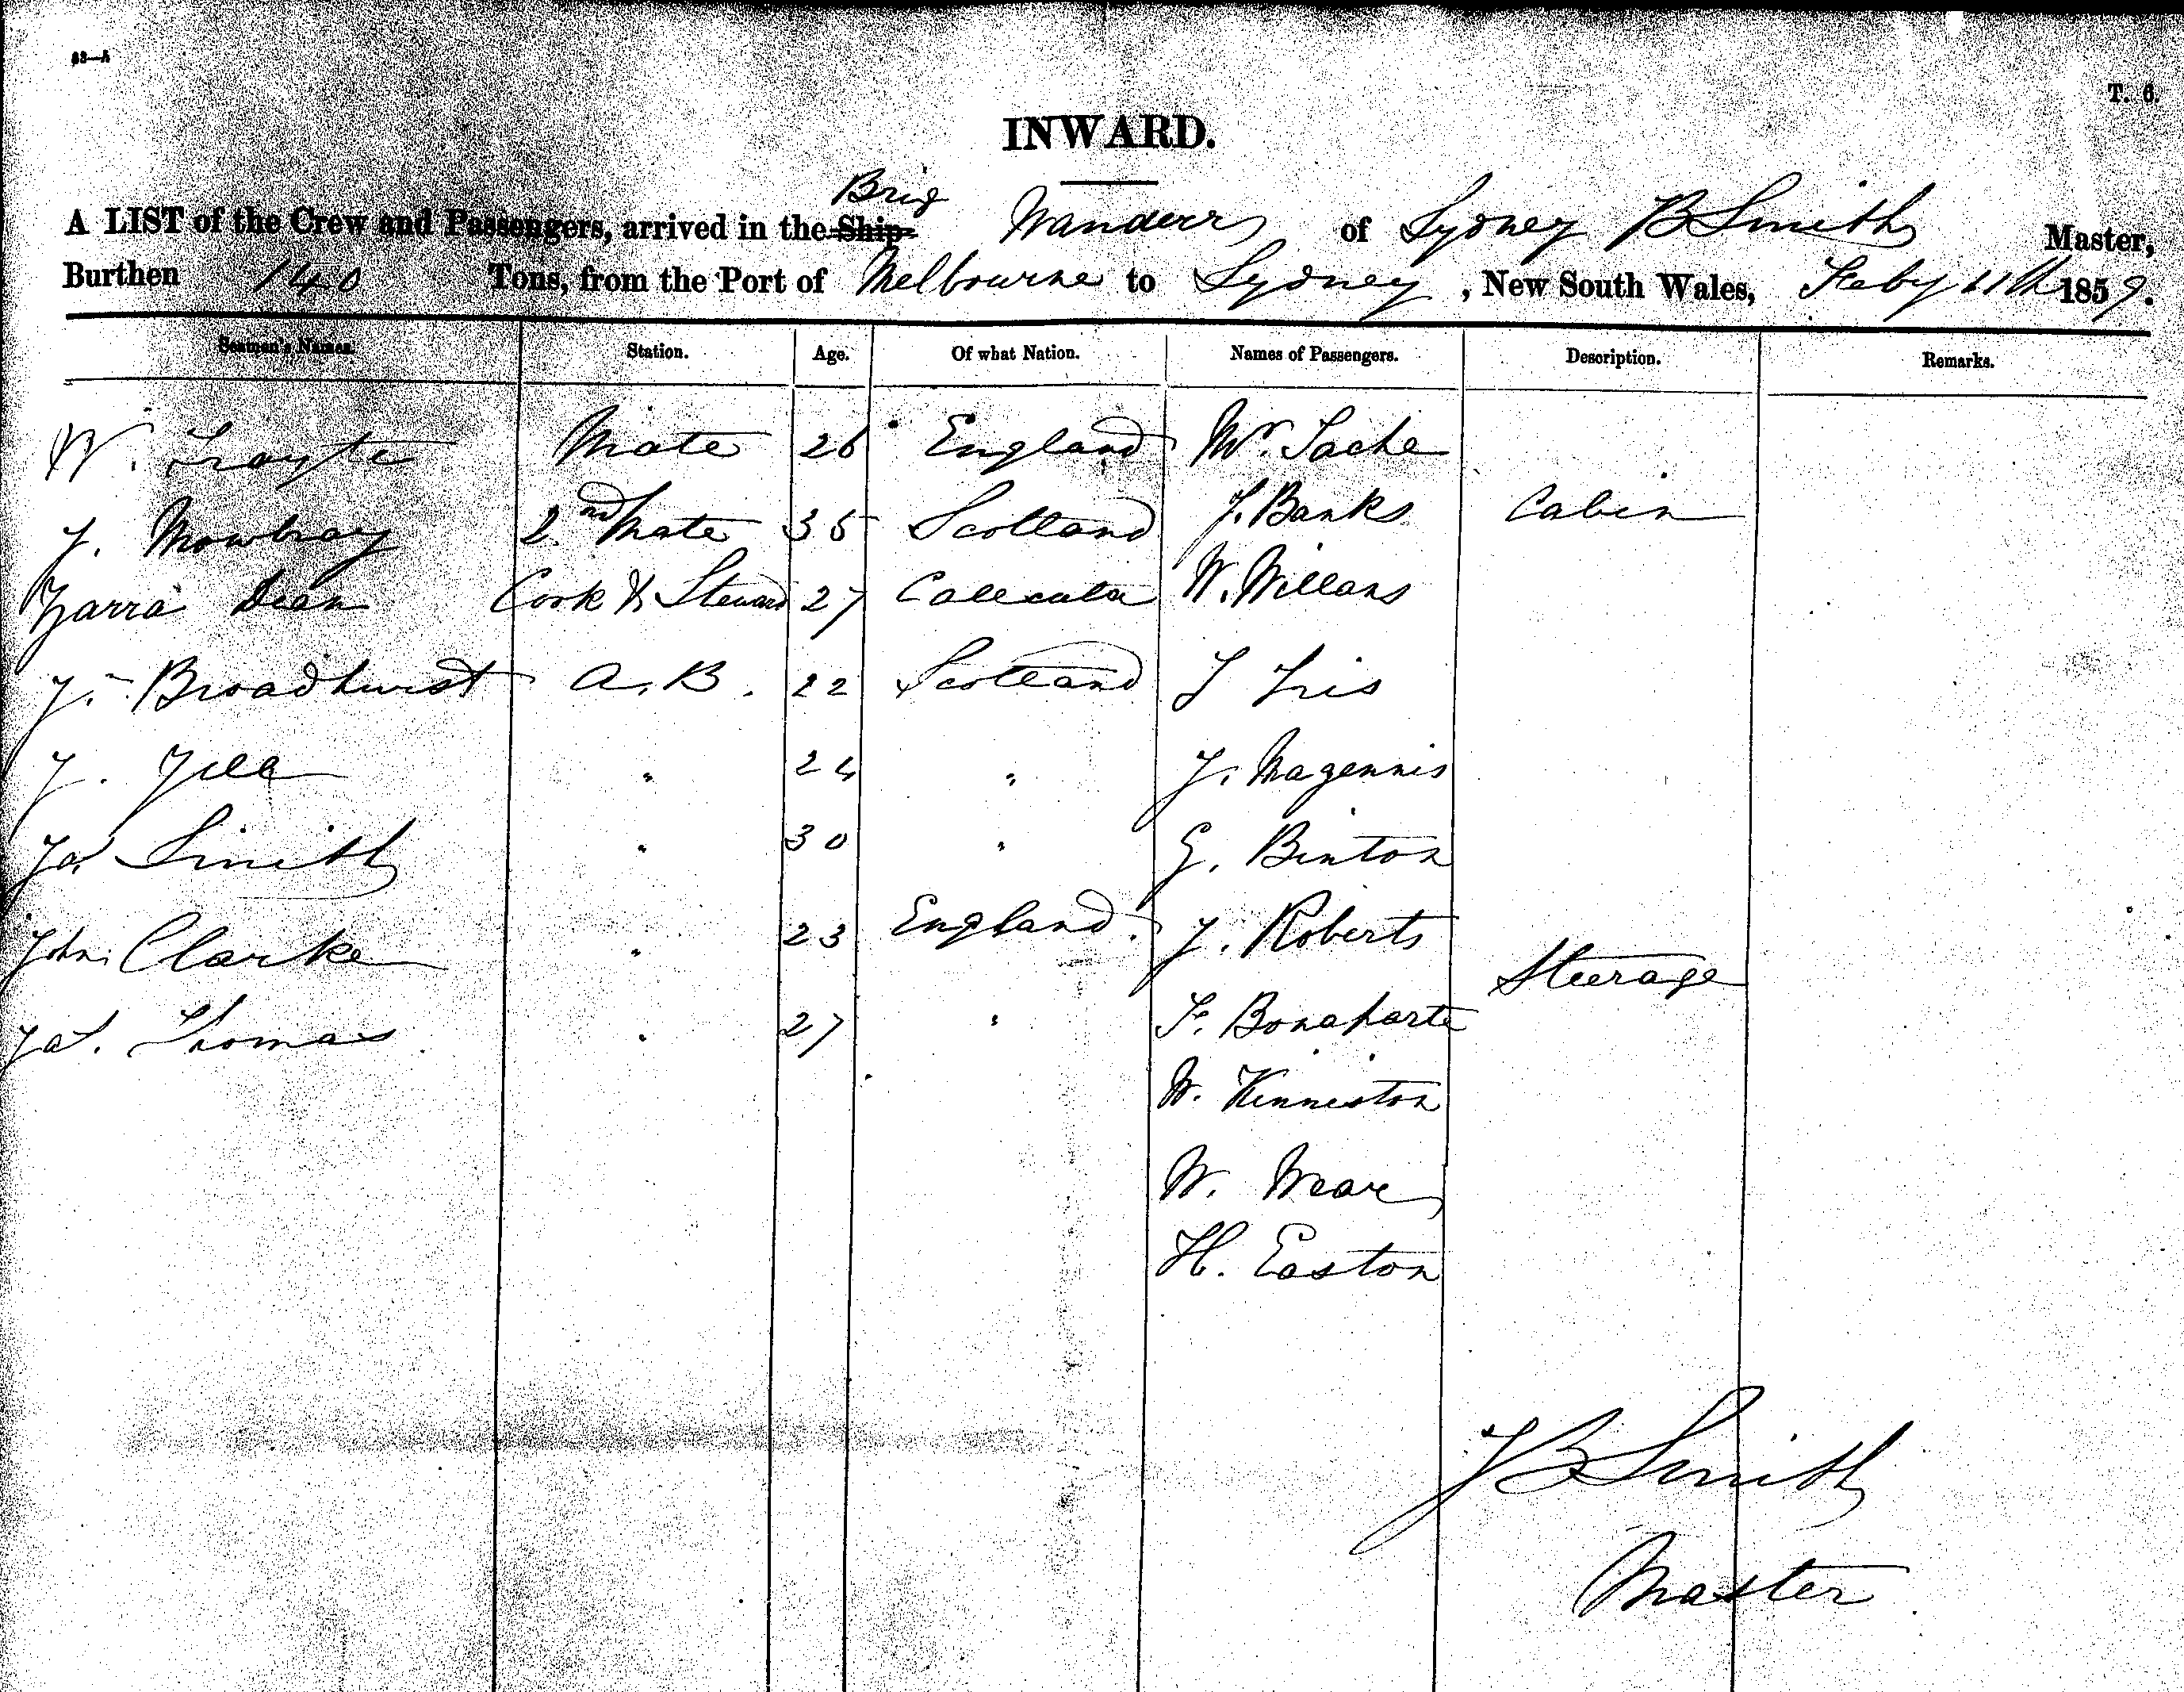 83—A
T. 6.
INWARD.
Brig
A LIST of the Crew and Passengers, arrived in the Ship Wanderer of Sydney B Smith Master,
Burthen 140 Tons, from the Port of Melbourne to Sydney, New South Wales, Feby 11th 1859.
Seamen's Names. Station. Age. Of what Nation. Names of Passengers. Description. Remarks.
W. Mate 26 England Mr. Sache
J. Mowbray 2nd Mate 35 Scotland J. Banks Cabin
Dean Cook & Steward 27 Callcutta W. Willans
J. Broadhurst A. B. 22 Scotland J
J. Gill " 24 " J. Magennis
Jas Smith " 30 " G. Binton
John Clarke " 23 England. J. Roberts
Steerage
Jas. Thomas " 27 " F. Bonaparte
W. Kenniston
W. Wear
H. Easton
J B Smith
Master